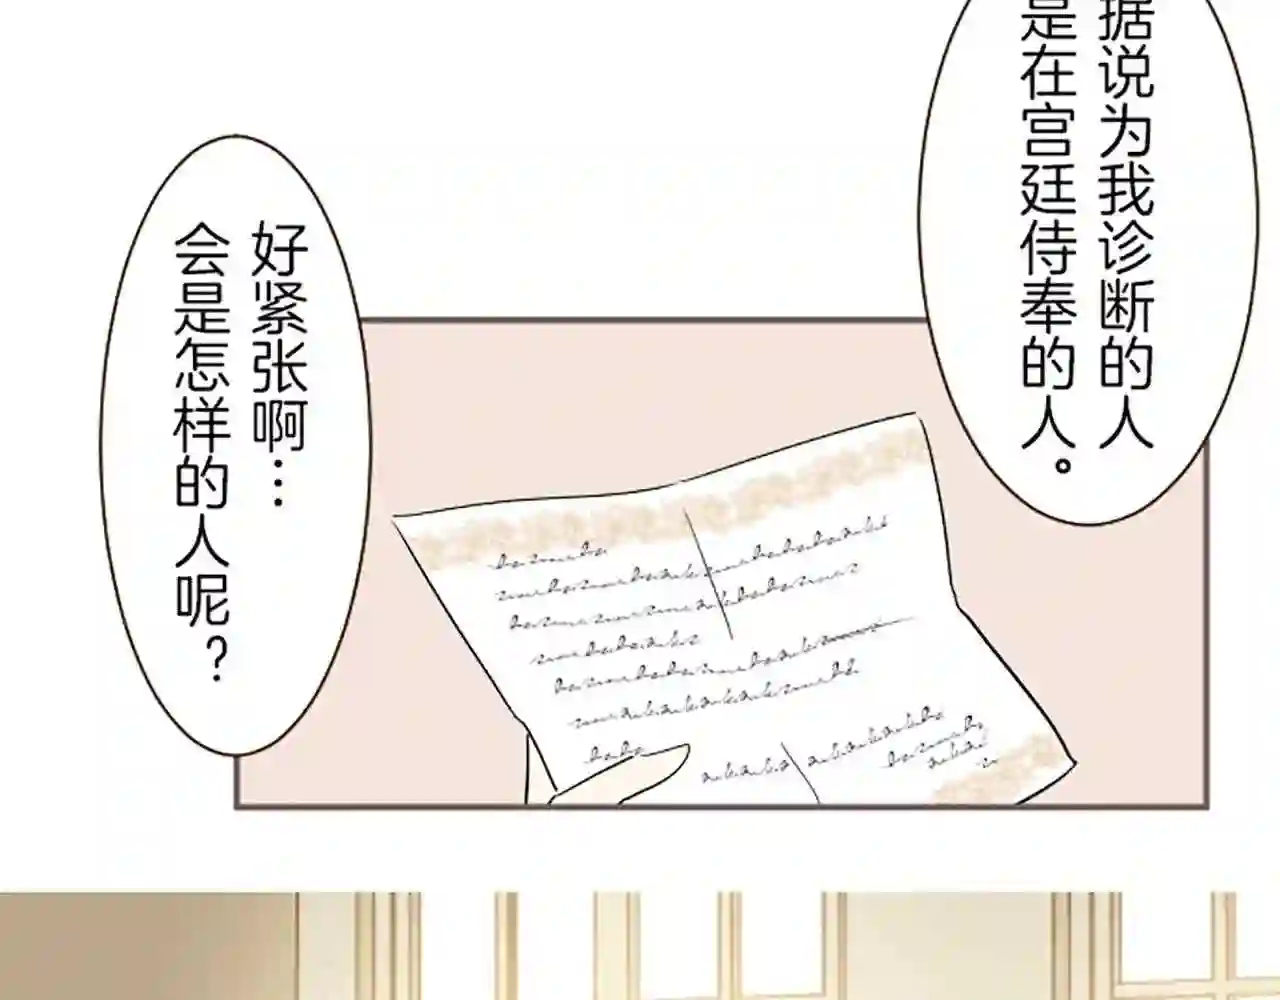 据说为我诊断的人
是在宫廷侍奉的人。
好紧张啊…
会是怎样的人呢？